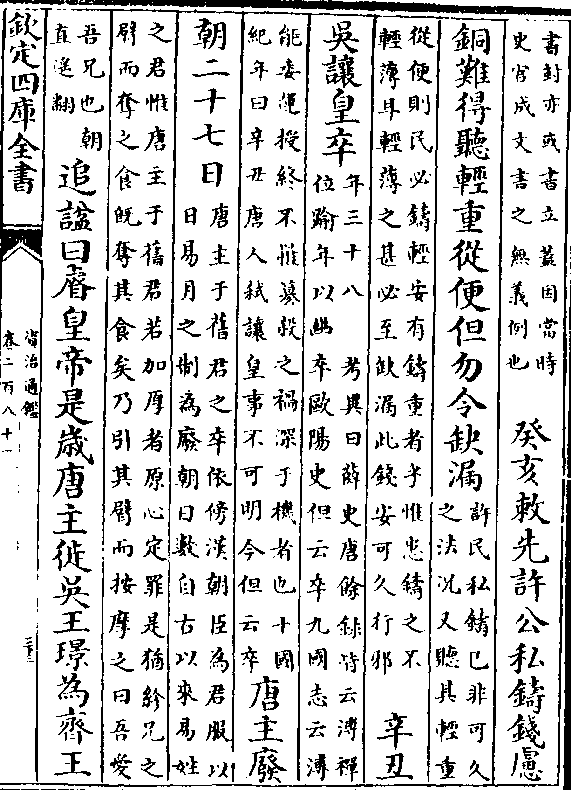 書封亦或書立蓋因當時
史官成文書之無義例也
癸亥敕先許公私鑄錢慮
銅難得聽輕重從便但勿令缺漏
許民私鑄已非可久
之法況又聽其輕重
從便則民必鑄輕安有鑄重者乎惟患鑄之不
輕薄耳輕薄之甚必至缺漏此錢安可久行邪
辛丑
吳讓皇卒
年三十八　考異曰薛史唐餘錄皆云溥禪
位踰年以幽卒歐陽史但云卒九國志云溥
能委運授終不罹篡殺之禍深于機者也十國
紀年曰辛丑唐人弒讓皇事不可明今但云卒
唐主廢
朝二十七日
唐主于舊君之卒依傍漢朝臣為君服以
日易月之制為廢朝日數自古以來易姓
之君惟唐主于舊君若加厚者原心定罪是猶紾兄之
臂而奪之食既奪其食矣乃引其臂而按摩之曰吾愛
吾兄也　朝
直遙翻
追諡曰睿皇帝是歲唐主徙吳王璟為齊王
欽定四庫全書
資治通鑑
卷二百八十一